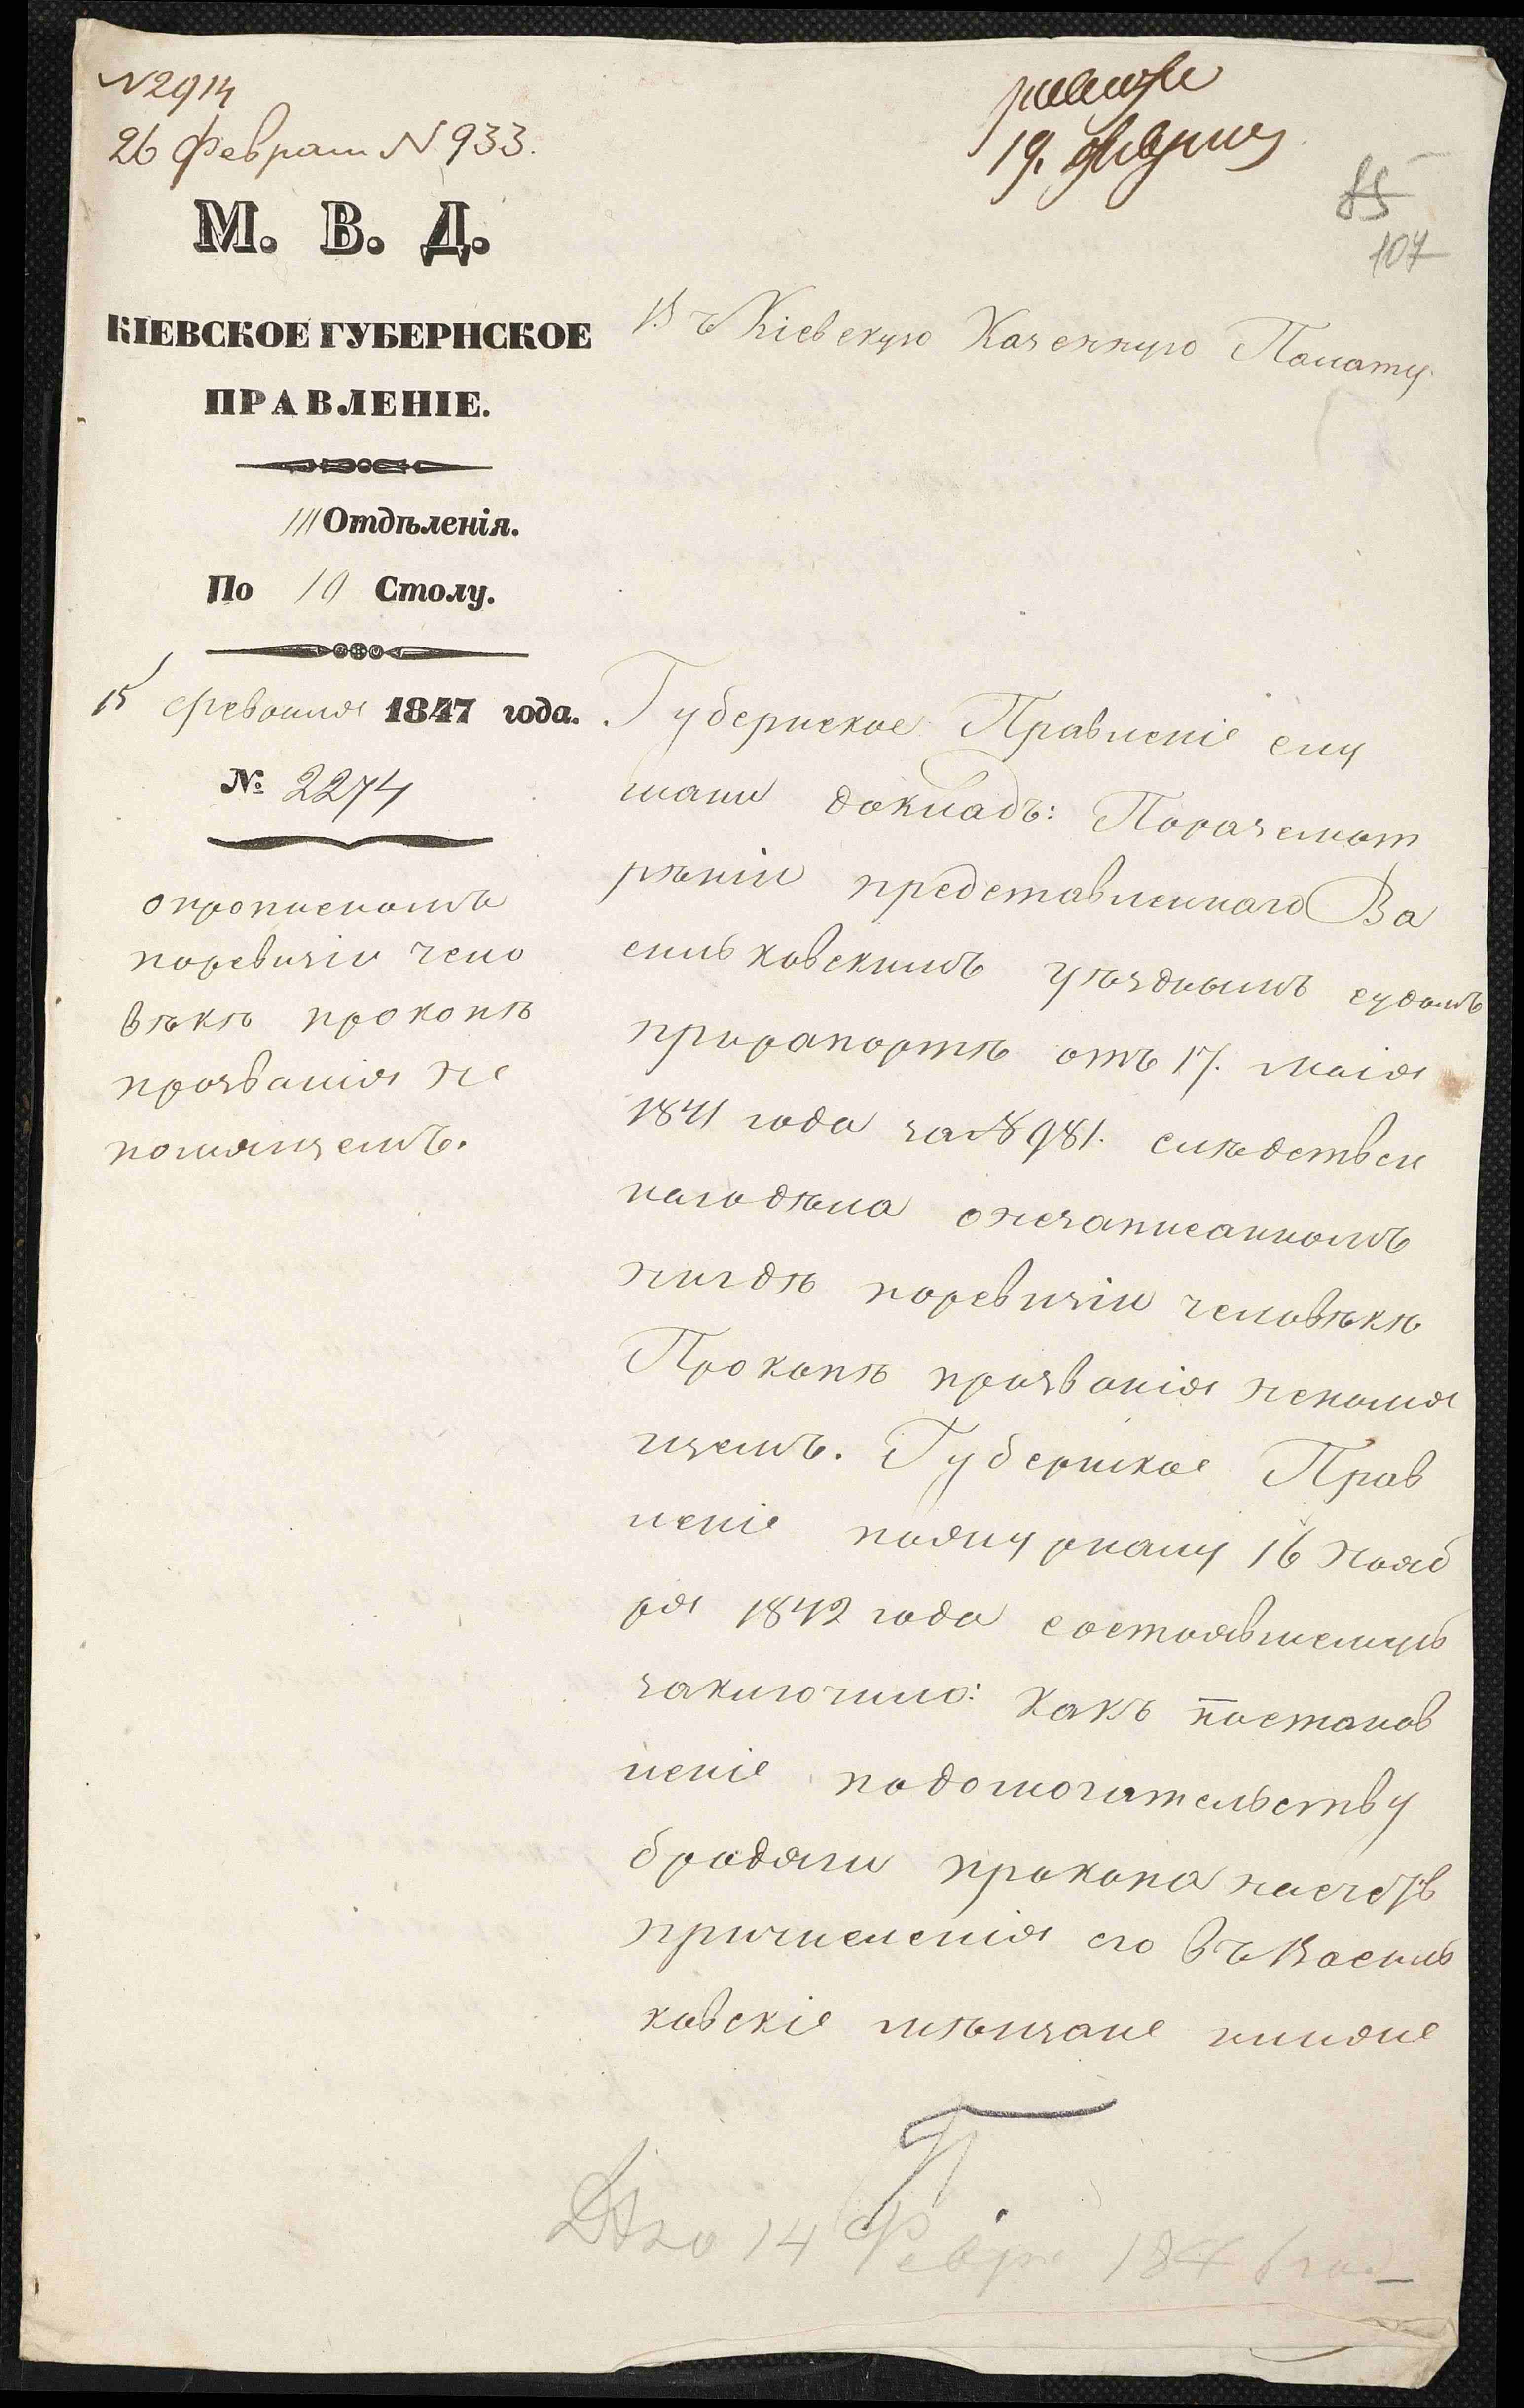 N 2914
26 Февраля N 933.
М. В. Д.
КІЕВСКОЕ ГУБЕРНСКОЕ
ПРАВЛЕНІЕ.
III Отдѣленія.
По 10 Столу.
15 февраля 1847 года.
№ 2274
опрописномъ
поревизіи чело
вѣкѣ прокопѣ
прозванія не
помнящемъ.
19. февраля
85
107
Въ Кіевскую Казенную Палату.
Губернское Правленіе слу
шали докладъ: Поразсмот
рѣніи представленнаго Ва
сильковскимъ уѣзднымъ судомъ
прирапортѣ отъ 17. маія
1841 года за № 981. слѣдствен
нагодѣла онезаписанномъ
нигдѣ поревизіи человѣкѣ
Прокопѣ прозванія непомня
щемъ. Губернское Прав
леніе 16 Нояб
ря 1842 года состоявшемусь
заключило: какъ постанов
леніе подомогательству
бродяги прокопа насчетъ
причисленія его въ Василь
ковскіе мѣщане
Дѣло 14 Февр 184 год